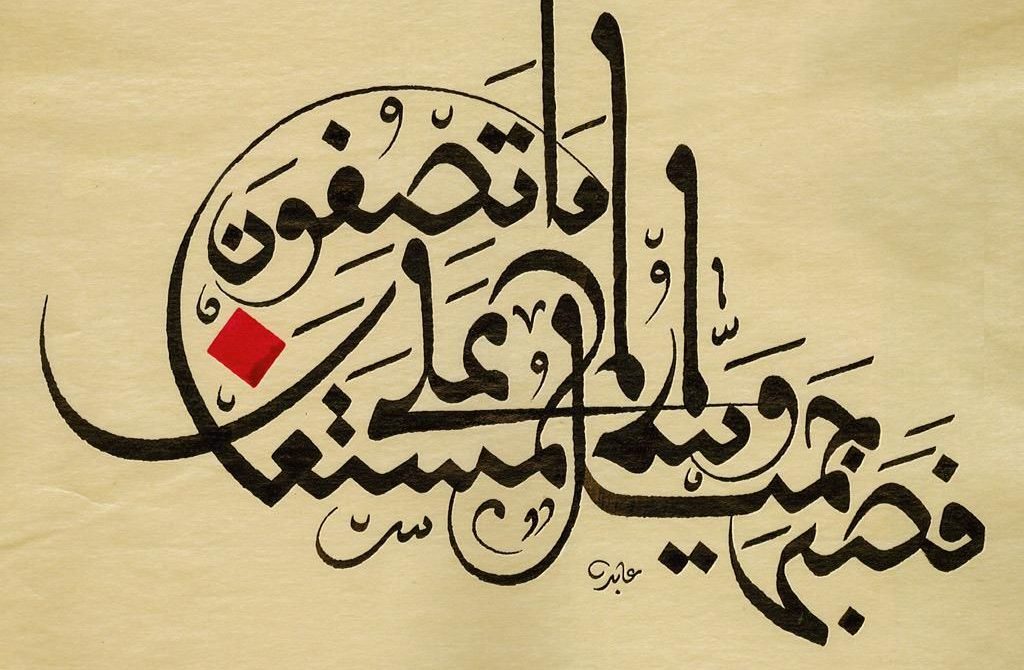 فصبر جميل والله المستعان على ما تصفون
عابد